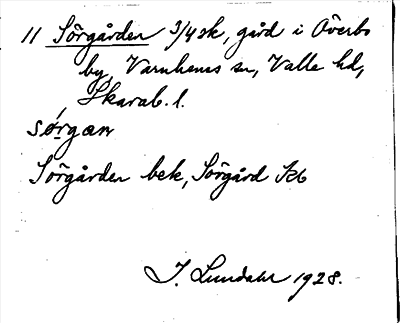 11 Sörgården 3/4 sk, gård i Överbo
by, Varnhems sn, Valle hd,
Skarab. l.
sørgæn
Sörgården bek, Sörgård Kb
I. Lundahl 1928.